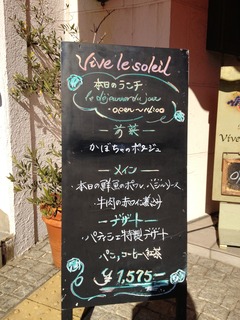 Vive le soleil
本日のランチ
le déjeuner du jour
open〜14:00
ー 前菜 ー
かぼちゃのポタージュ
ー メイン ー
・本日の鮮魚のポワレ、バジルソース
・牛肉の赤ワイン煮込み
ー デザート ー
・パティシエ特製デザート
パン,コーヒーor紅茶
¥1,575-
Vive